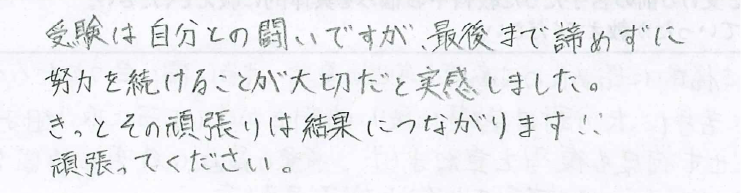 受験は自分との闘いですが、最後まで諦めずに
努力を続けることが大切だと実感しました。
きっとその頑張りは結果につながります!!
頑張ってください。